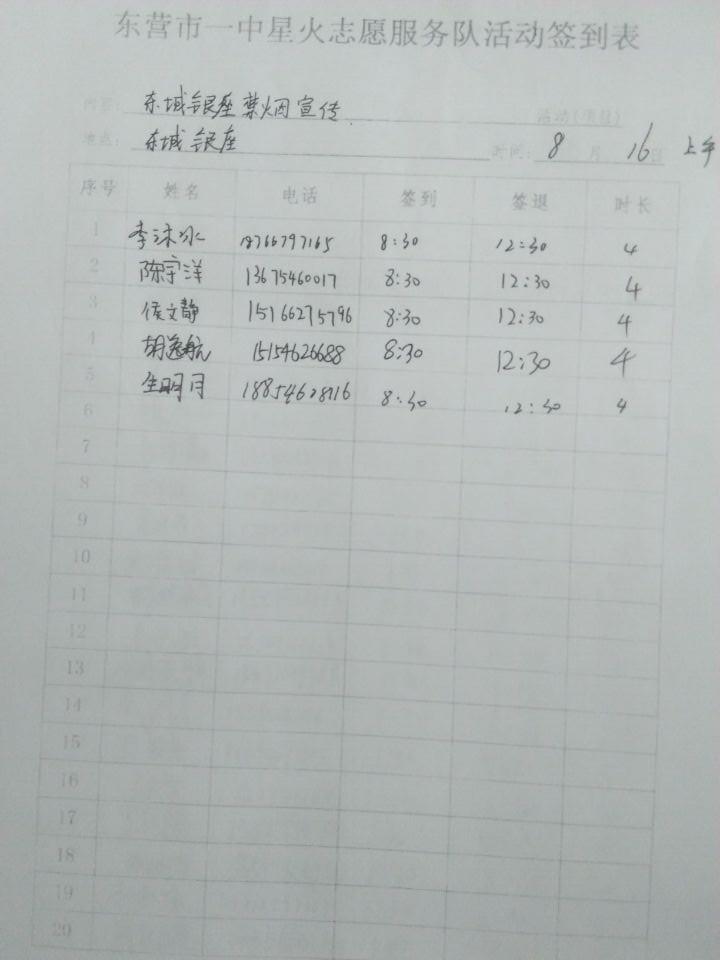 东营市一中星火志愿服务队活动签到表
内容: 东城银座禁烟宣传 活动(项目)
地点: 东城银座 时间: 8 月 16 日 上午
序号 姓名 电话 签到 签退 时长
1 李沐冰 18766797165 8:30 12:30 4
2 陈宇洋 13675460017 8:30 12:30 4
3 侯文静 15166275796 8:30 12:30 4
4 胡逸航 15154626688 8:30 12:30 4
5 生明月 18854628116 8:30 12:30 4
6
7
8
9
10
11
12
13
14
15
16
17
18
19
20